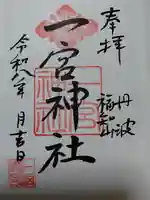 奉拝
丹波
福知山
一宮神社
令和八年 月吉日